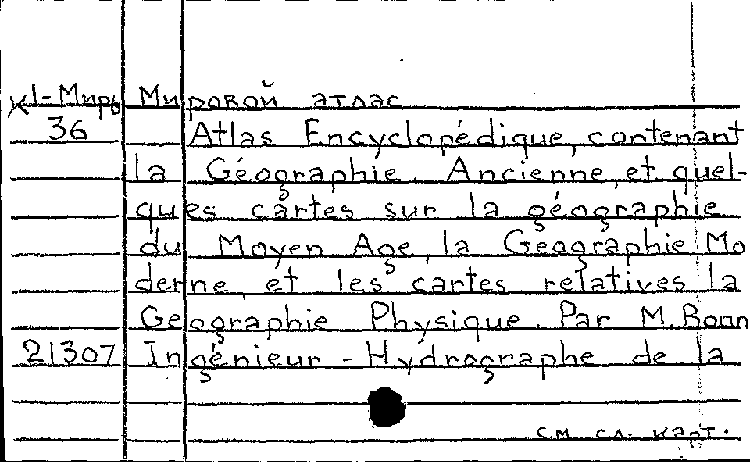 К1-Миръ Мировой атлас
36 Atlas Encyclopédique, contenant
la Géographie Ancienne, et quel-
ques cartes sur la géographie
du Moyen Age, la Géographie Mo
derne, et les cartes relatives la
Geographie Physique. Par M. Bonn
21307 Ingénieur - Hydrographe de la
см. сл. карт.